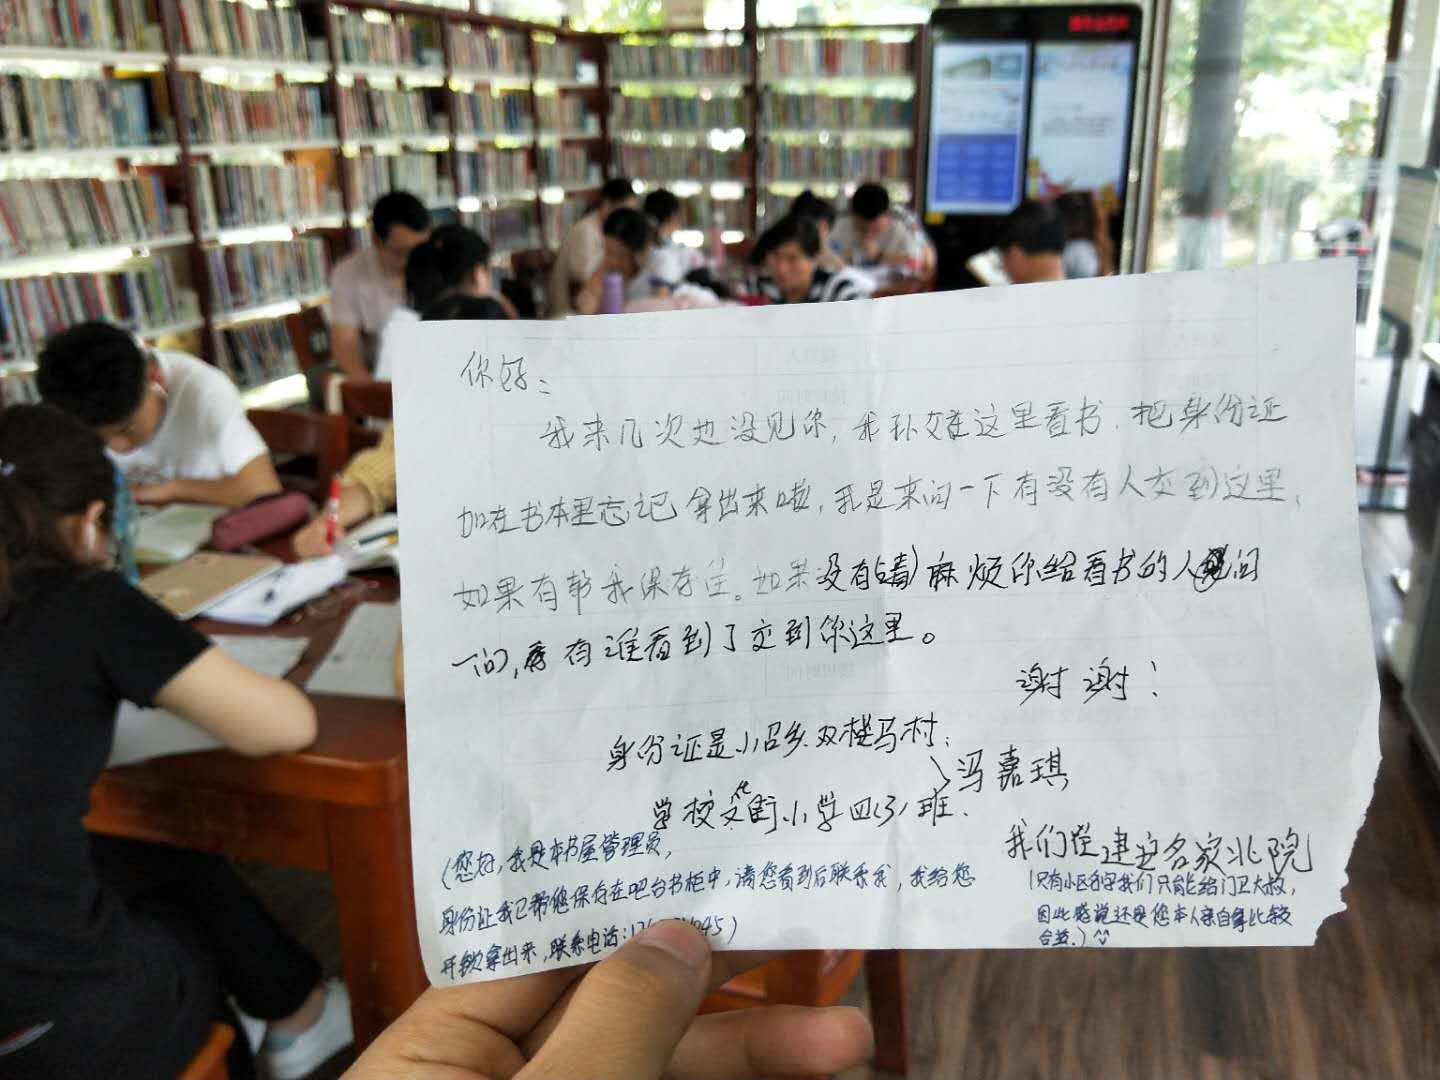 你好：
我来几次也没见你，我孙女在这里看书，把身份证
加在书本里忘记拿出来啦，我是来问一下有没有人交到这里，
如果有帮我保存住。如果没有(请)麻烦你给看书的人问
一问，看有谁看到了交到你这里。
谢谢！
身份证是小召乡双楼马村，
冯嘉琪
学校文化街小学四(3)班.
我们住建业名家北院
(您好，我是本书屋管理员，
身份证我已帮您保存在吧台书柜中，请您看到后联系我，我给您
开锁拿出来，联系电话:
(只有小区名字我们只能给门卫大叔，
因此感觉还是您本人亲自拿比较
合适.)